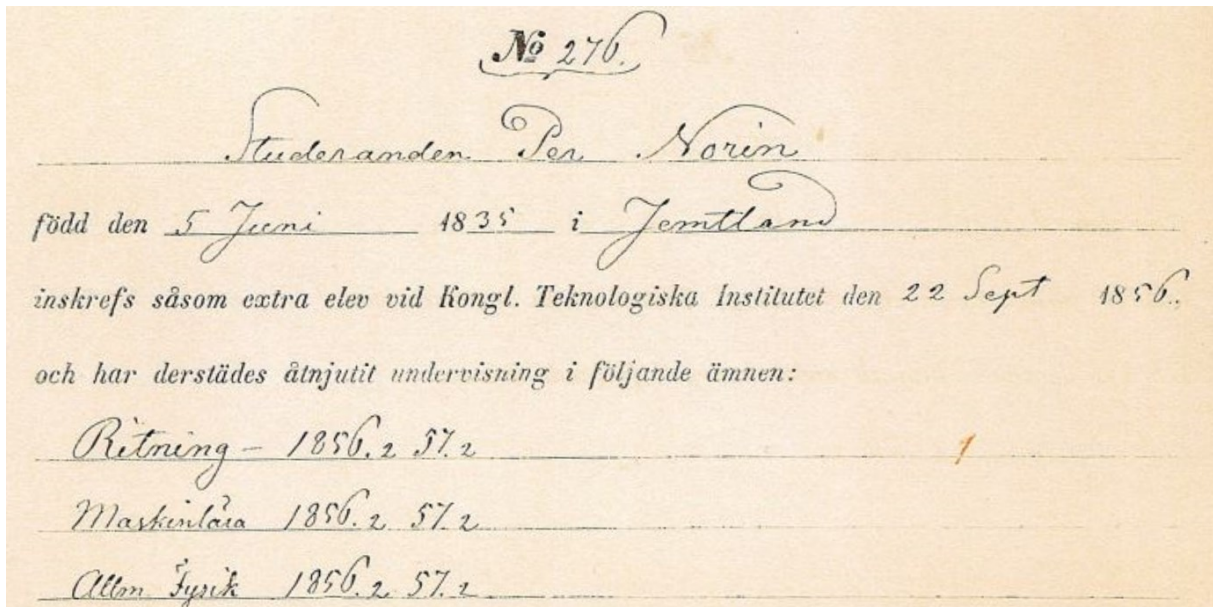 № 276.
Studeranden Per Norin
född den 5 Juni 1835 i Jemtland
inskrefs såsom extra elev vid Kongl. Teknologiska Institutet den 22 Sept 1856.
och har derstädes åtnjutit undervisning i följande ämnen:
Ritning – 1856.2 57.2
Maskinlära 1856.2 57.2
Allm Fysik 1856.2 57.2